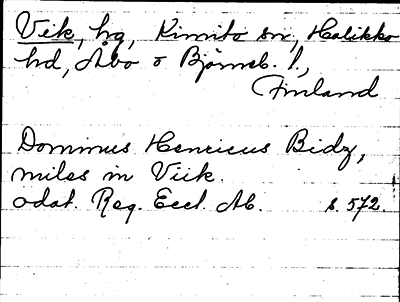 Viik, hg, Kimito sn, Halikko
hd, Åbo o Björneb. l.,
Finland
Dominus Henricus Bidz,
miles in Viik.
odat. Reg. Eccl. Ab. s. 572.